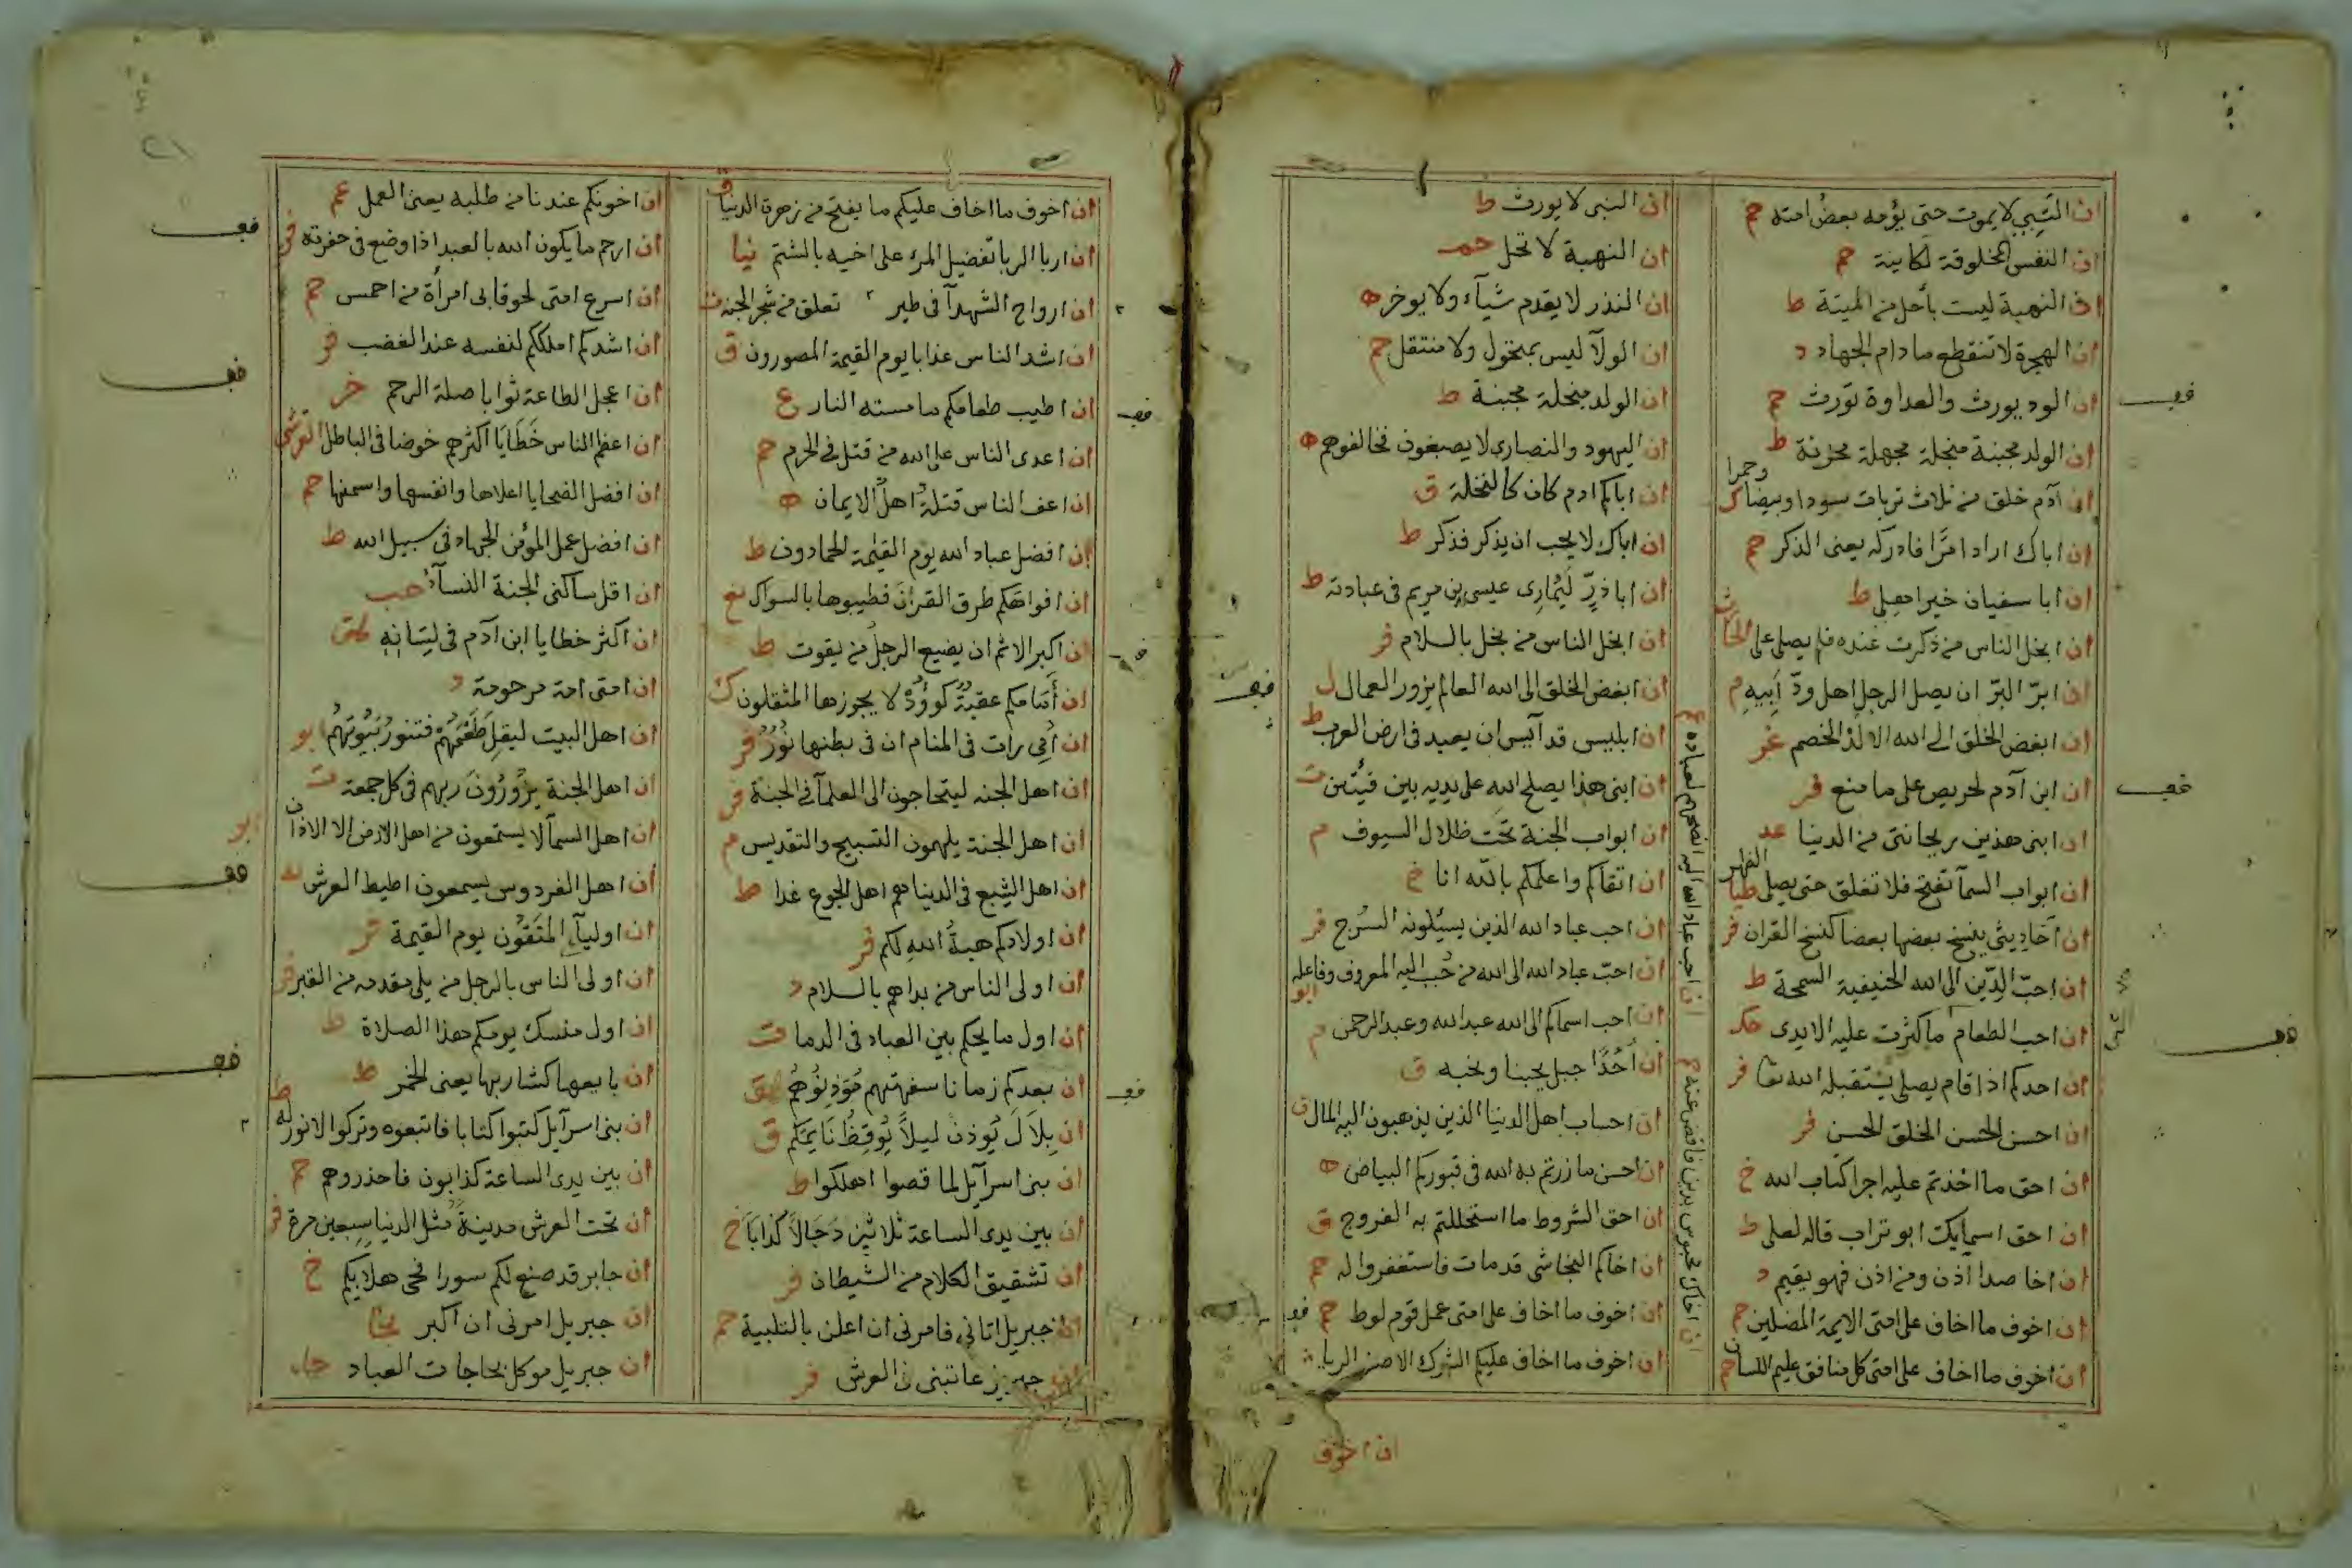 ان النبي لا يموت حتى يؤمه بعض امته حم
ان النفس المخلوقة لكاينة حم
ان النهبة ليست بأحل من الميتة ط
ان الهجرة لا تنقطع ما دام الجهاد د
ان الود يورث والعداوة تورث حم
ان الولد مجبنة مبخلة مجهلة محزنة ط
ان آدم خلق من ثلاث تربات سودا وبيضا وحمرا
ان اباك اراد امرا فادركه يعنى الذكر حم
ان ابا سفيان خير اهلى ط
ان ابخل الناس من ذكرت عنده فلم يصل على الحارث
ان ابرّ البرّ ان يصل الرجل اهل ودّ ابيه م
ان ابغض الخلق الى الله الالد الخصم
ان ابن آدم لحريص على ما منع فر
ان ابنى هذين ريحانتى من الدنيا عد
ان ابواب السمآ تفتح فلا تغلق حتى يصلى الظهر طيا
ان أحاديثى ينسخ بعضها بعضا كنسخ القران فر
ان احبّ الدّين الى الله الحنيفية السمحة ط
ان احب الطعام ما كثرت عليه الايدى
ان احدكم اذا قام يصلى يستقبله الله تعا فر
ان احسن الحسن الخلق الحسن فر
ان احق ما اخذتم عليه اجرا كتاب الله خ
ان احق اسمايك ابو تراب قاله لعلى ط
ان اخا صدا آذن ومن اذن فهو يقيم د
ان اخوف ما اخاف على امتى الايمة المضلين حم
ان اخوف ما اخاف على امتى كل منافق عليم اللسان حم
ان احب عباد الله اليه انصحهم لعباده عم
ان اخاك محبوس بدين فاقض عنه حم
ان النبى لا يورث ط
ان النهبة لا تحل حمـ
ان النذر لا يقدم شيآء ولا يوخر ه
ان الولآ ليس بمتحول ولا منتقل حم
ان الولد مبخلة مجبنة ط
ان اليهود والنصارى لا يصبغون فخالفوهم ه
ان اباكم ادم كان كالنخلة ق
ان اباك لا يحب ان يذكر فذكر ط
ان اباذرّ ليُمارى عيسى بن مريم فى عبادته ط
ان ابخل الناس من بخل بالسلام فر
ان ابغض الخلق الى الله العالم يزور العمال ل
ان ابليس قد آئيس ان يعبد فى ارض العرب ط
ان ابنى هذا يصلح الله على يديه بين فئتين ت
ان ابواب الجنة تحت ظلال السيوف م
ان اتقاكم واعلمكم بالله انا خ
ان احب عباد الله الذين يسيلونه السرج فر
ان احبّ عباد الله الى الله من حبب اليه المعروف وفاعله ابو
ان احب اسماكم الى الله عبد الله وعبد الرحمن م
ان أحُدًا جبل يحبنا ونحبه ق
ان احساب اهل الدنيا الذين يذهبون اليه المال ن
ان احسن ما زرتم به الله فى قبوركم البياض ه
ان احق الشروط ما استحللتم به الفروج ق
ان اخاكم النجاشى قد مات فاستغفروا له حم
ان اخوف ما اخاف على امتى عمل قوم لوط حم
ان اخوف ما اخاف عليكم الشرك الاصغر الريا
ان اخوف
ان اخوف ما اخاف عليكم ما يفتح من زهرة الدنيا ق
ان اربا الربا تفضيل المرء على اخيه بالشتم نيا
ان ارواح الشهدآ فى طير تعلق من شجر الجنة ت
ان اشد الناس عذابا يوم القيمة المصورون ق
ان اطيب طعامكم ما مسته النار ع
ان اعدى الناس على الله من قتل فى الحرم حم
ان اعف الناس قتلةً اهل الايمان ه
ان افضل عباد الله يوم القيمة الحمادون ط
ان افواهكم طرق القران فطيبوها بالسواك نع
ان اكبر الاثم ان يضيع الرجل من يقوت ط
ان أمامكم عقبةً كوؤدٌ لا يجوزها المثقلون ك
ان أمى رات فى المنام ان فى بطنها نورٌ فر
ان اهل الجنه ليتحاجون الى العلمآ فى الجنة فر
ان اهل الجنة يلهمون التسبيح والتقديس م
ان اهل الشبع فى الدنيا هم اهل الجوع غدا ط
ان اولادكم هبةُ الله لكم فر
ان اولى الناس من بداهم بالسلام د
ان اول ما يحكم بين العباد فى الدما ت
ان بعدكم زمانا سفهتهم مُوَذنُوهُم هق
ان بلال يُوذن ليلاً يُوقِظُ نايمكم ق
ان بنى اسرآيل لما قصوا اهلكوا ط
ان بين يدى الساعة ثلاثين دجالاً كذابا خ
ان تشقيق الكلام من الشيطان فر
ان جبريل اتانى فامرنى ان اعلن بالتلبية حم
ان اخونكم عندنا من طلبه يعنى العمل عم
ان ارحم ما يكون الله بالعبد اذا وضع فى حفرته فر
ان اسرع امتى لحوقا بى امرأة من احمس حم
ان اشدكم املككم لنفسه عند الغضب فر
ان اعجل الطاعة ثوابا صلة الرحم خر
ان اعظم الناس خطايا اكثرهم خوضا فى الباطل القرشى
ان افضل الضحايا اعلاها وانفسها واسمنها حم
ان افضل عمل المؤمن الجهاد فى سبيل الله ط
ان اقل ساكنى الجنة النسآء حب
ان اكثر خطايا ابن آدم فى لسانه
ان امتى امة مرحومة د
ان اهل البيت ليقل طعمهم فتنور بيوتهم ابو
ان اهل الجنة يزورون ربهم فى كل جمعة ت
ان اهل السمآ لا يستمعون من اهل الارض الا الاذان ابو
ان اهل الفردوس يسمعون اطيط العرش
ان اوليآءِ المتقون يوم القيمة
ان اولى الناس بالرجل من يلى مقدمه من القبر فر
ان اول منسك يومكم هذا الصلاة ط
ان بايعها كشاربها يعنى الخمر ط
ان بنى اسرآيل كتبوا كتابا فاتبعوه وتركوا التورله ط
ان بين يدى الساعة كذابون فاحذروهم حم
ان تحت العرش مدينةً مثل الدنيا سبعين مرة فر
ان جابر قد صنع لكم سورا فحى هلا بكم خ
ان جبريل امرنى ان اكبر
ان جبريل موكل بحاجات العباد